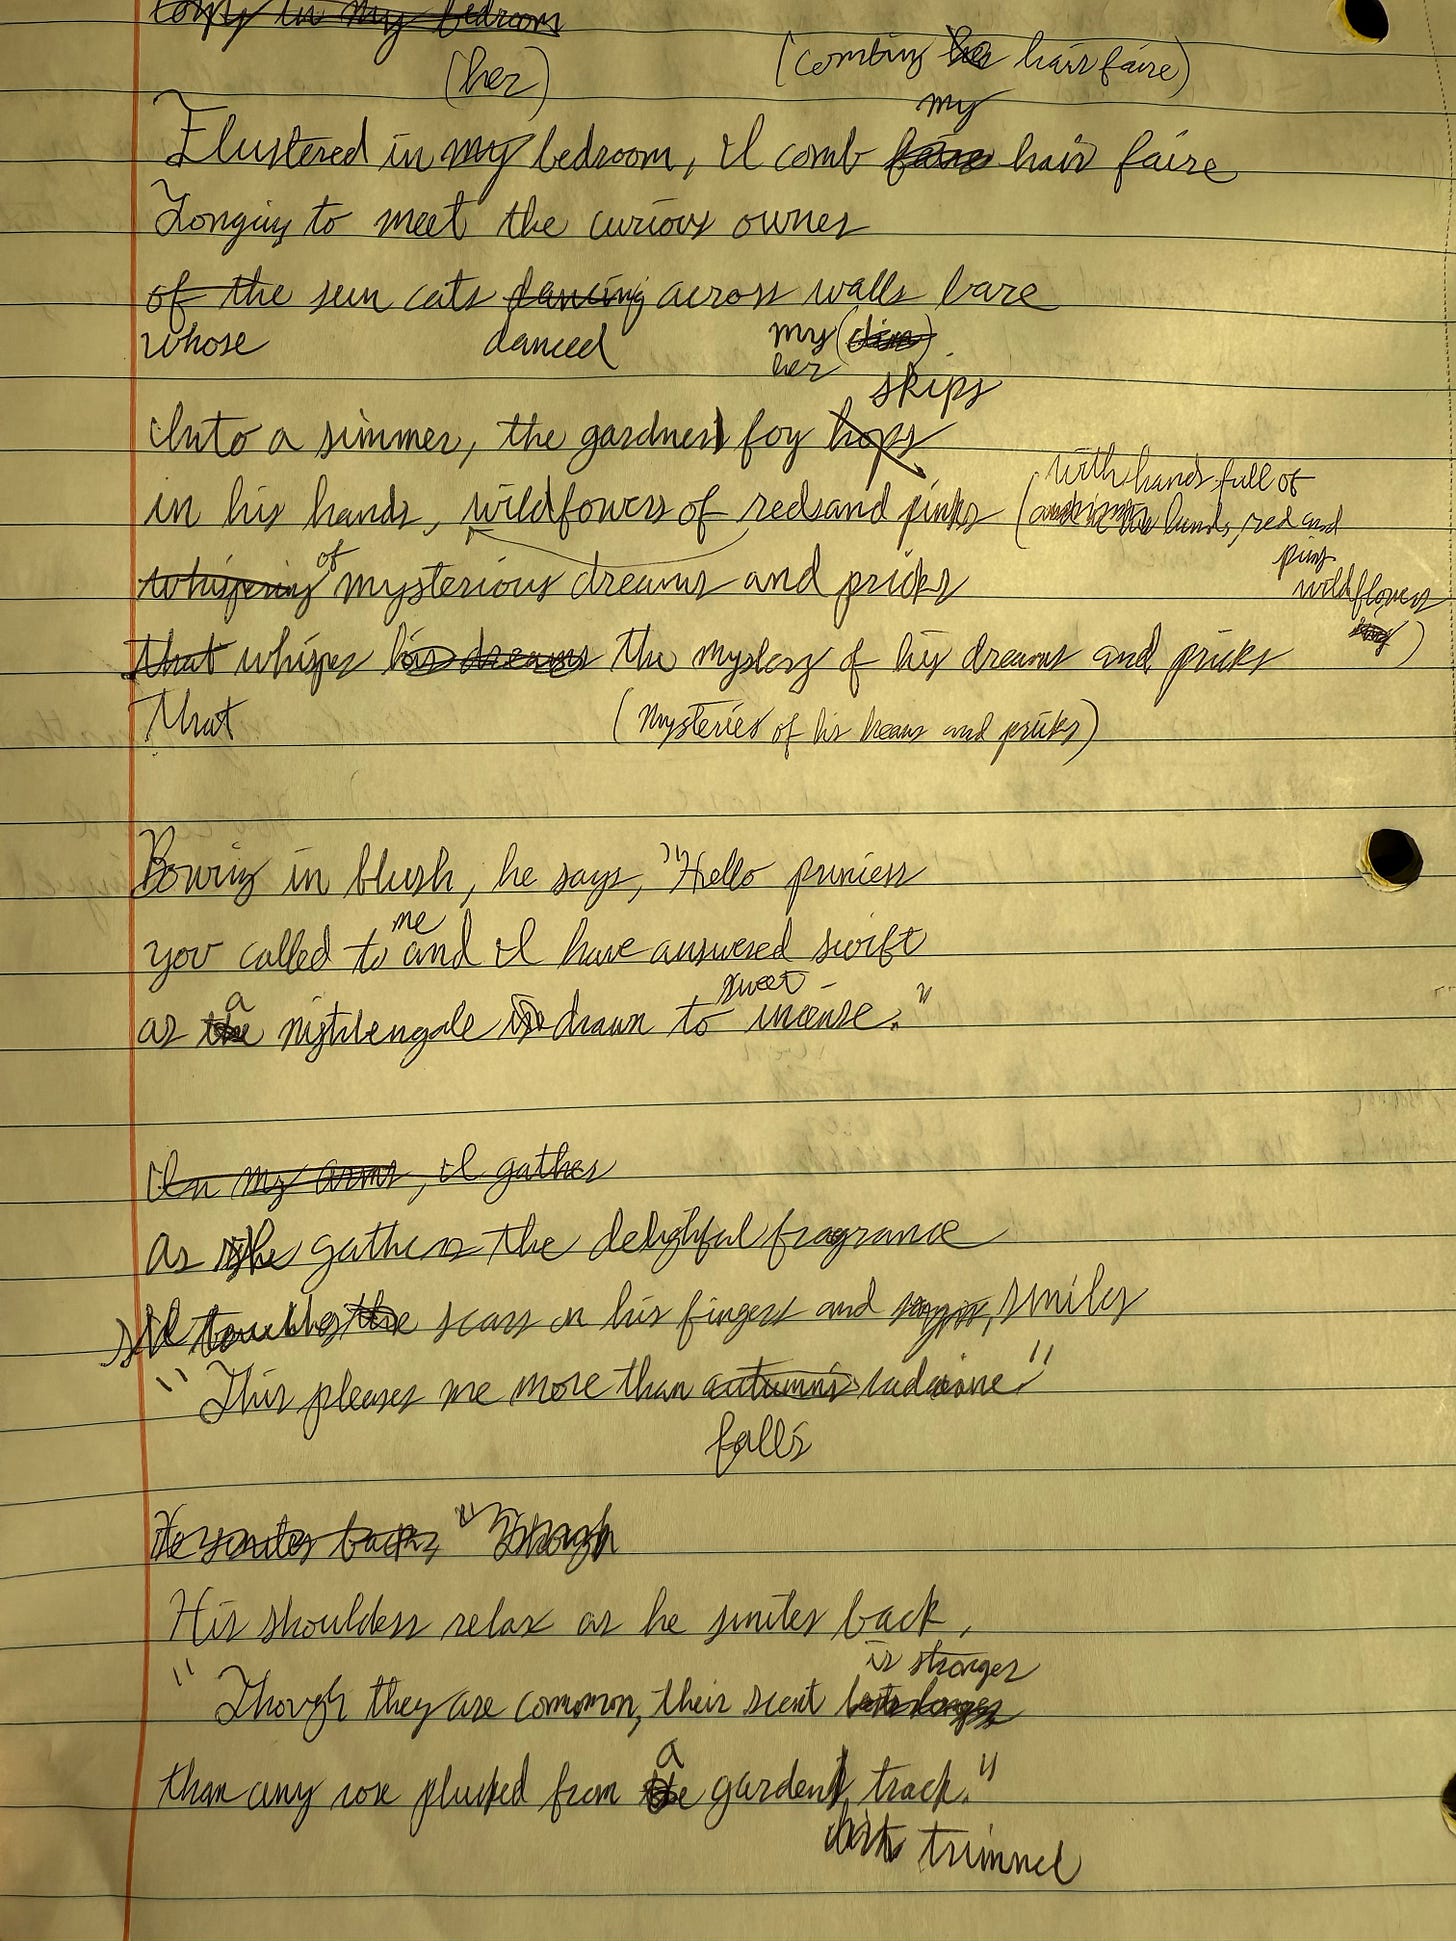 in my bedroom
(her) (combing her hair faire)
my
Flustered in my bedroom, I comb hair faire
Longing to meet the curious owner
of the sun cats dancing across walls bare
whose danced my
her skips
Into a simmer, the gardner foy hops
in his hands, wildfowers of reds and pinks (with hands full of
hands, red and
pink
of
wildflowers
whispering mysterious dreams and pricks
)
that whisper his dreams the mystery of his dreams and pricks
That (mysteries of his dreams and pricks)
Bowing in blush, he says, "Hello princess
me
you called to and I have answered swift
a sweet
as the nightengale is drawn to incense."
In my arms, I gather
as she gathers the delightful fragrance
touches the scars on his fingers and smiles
"This pleases me more than autumn's
falls
He smiles back, "Though
His shoulders relax as he smiles back,
is stronger
"Though they are common, their scent lasts longer
a
than any rose plucked from the garden track."